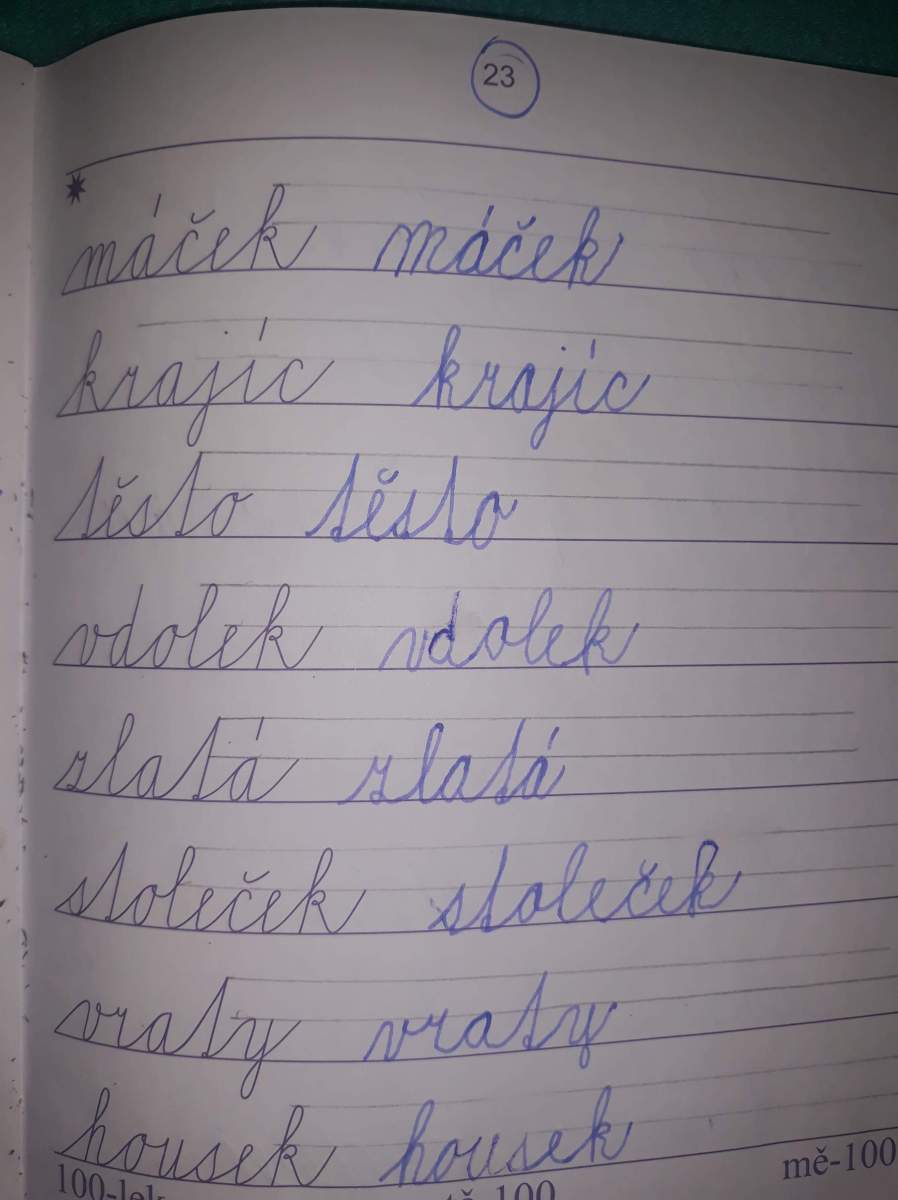 23
máček máček
krajíc krajíc
těsto těsto
vdolek vdolek
zlatá zlatá
stoleček stoleček
vraty vraty
housek housek
mě-100